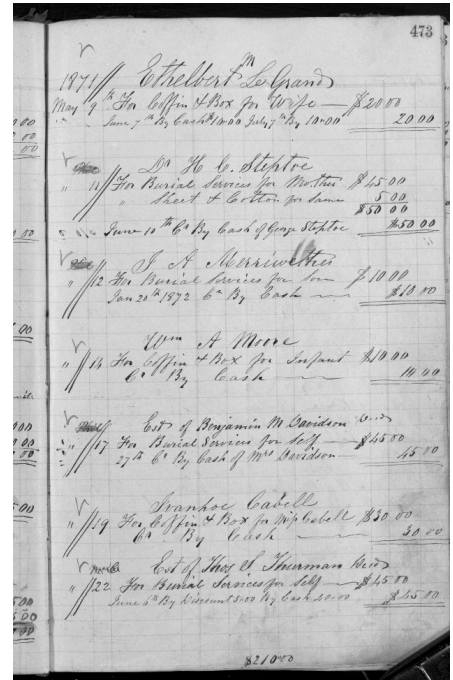 473
1871 Ethelbert M LeGrand
May 9th For Coffin & Box for Wife $20.00
June 7th By Cash 10.00 July 7th By 10.00 20.00
Dr H. C. Steptoe
" 11 For Burial Services for Mother $45.00
" Sheet & Cotton for same 5.00
$50.00
June 10th Cr By Cash of George Steptoe $50.00
J A Merriwether
" 12 For Burial Services for Son $10.00
Jan 20th 1872 Cr By Cash $10.00
Wm A Moore
" 14 For Coffin & Box for Infant $10.00
Cr By Cash 10.00
Est of Benjamin M Davidson Decd
" 17 For Burial Services for Self $45.00
27th Cr By Cash of Mrs Davidson 45.00
Ivanhoe Cabell
" 19 For Coffin & Box for Miss Cabell $30.00
Cr By Cash 30.00
Est of Thos S. Thurman Decd
" 22 For Burial Services for Self $45.00
June 6th By Discount 5.00 By Cash 40.00 $45.00
$210.00